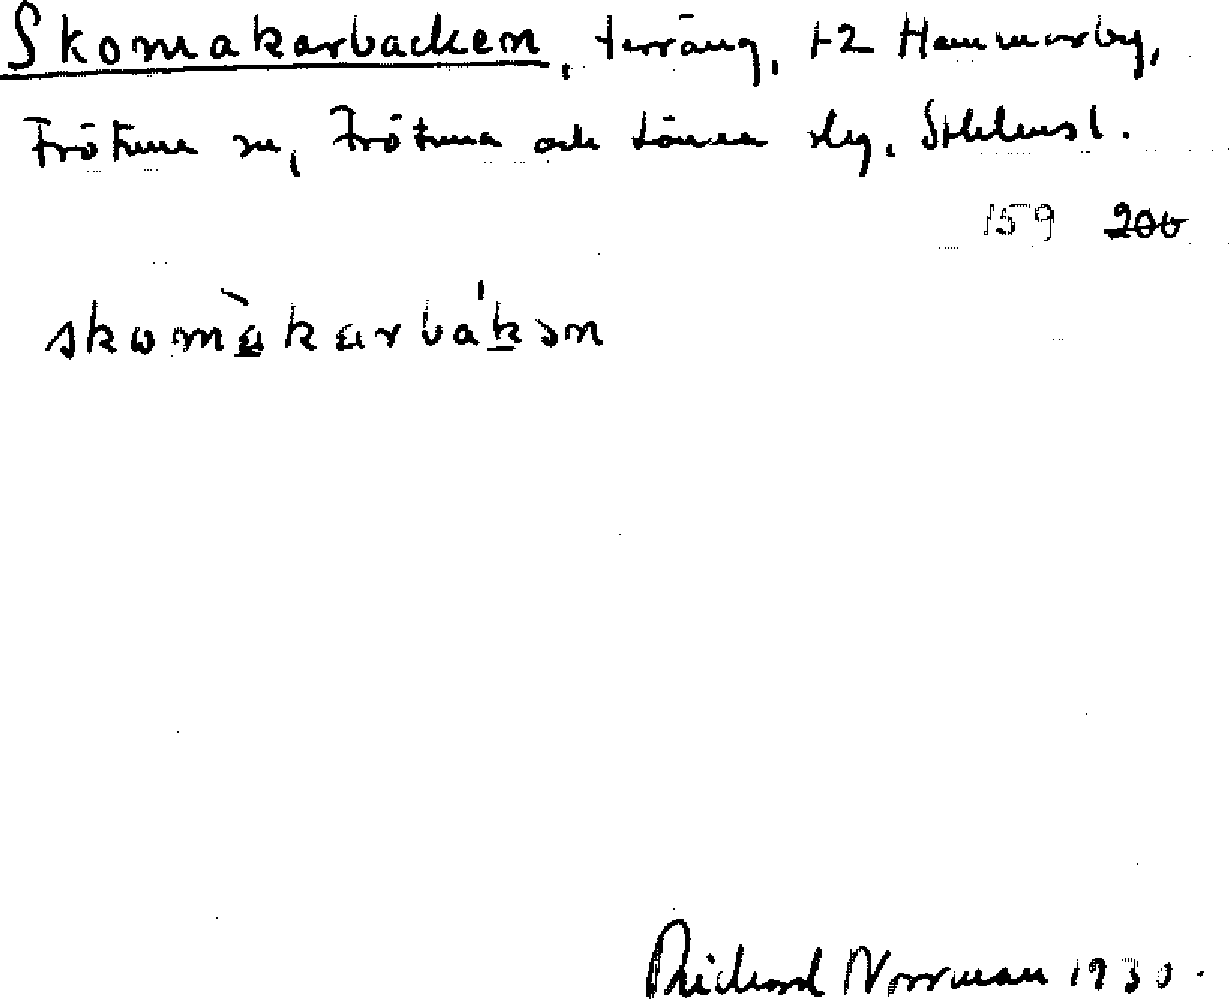 Skomakarbacken, terräng, +2 Hammarby,
Frötuna sn, Frötuna och Länna slg. Sthlmsl.
159 200
skomàkarbákən
Richard Norrman 1930.